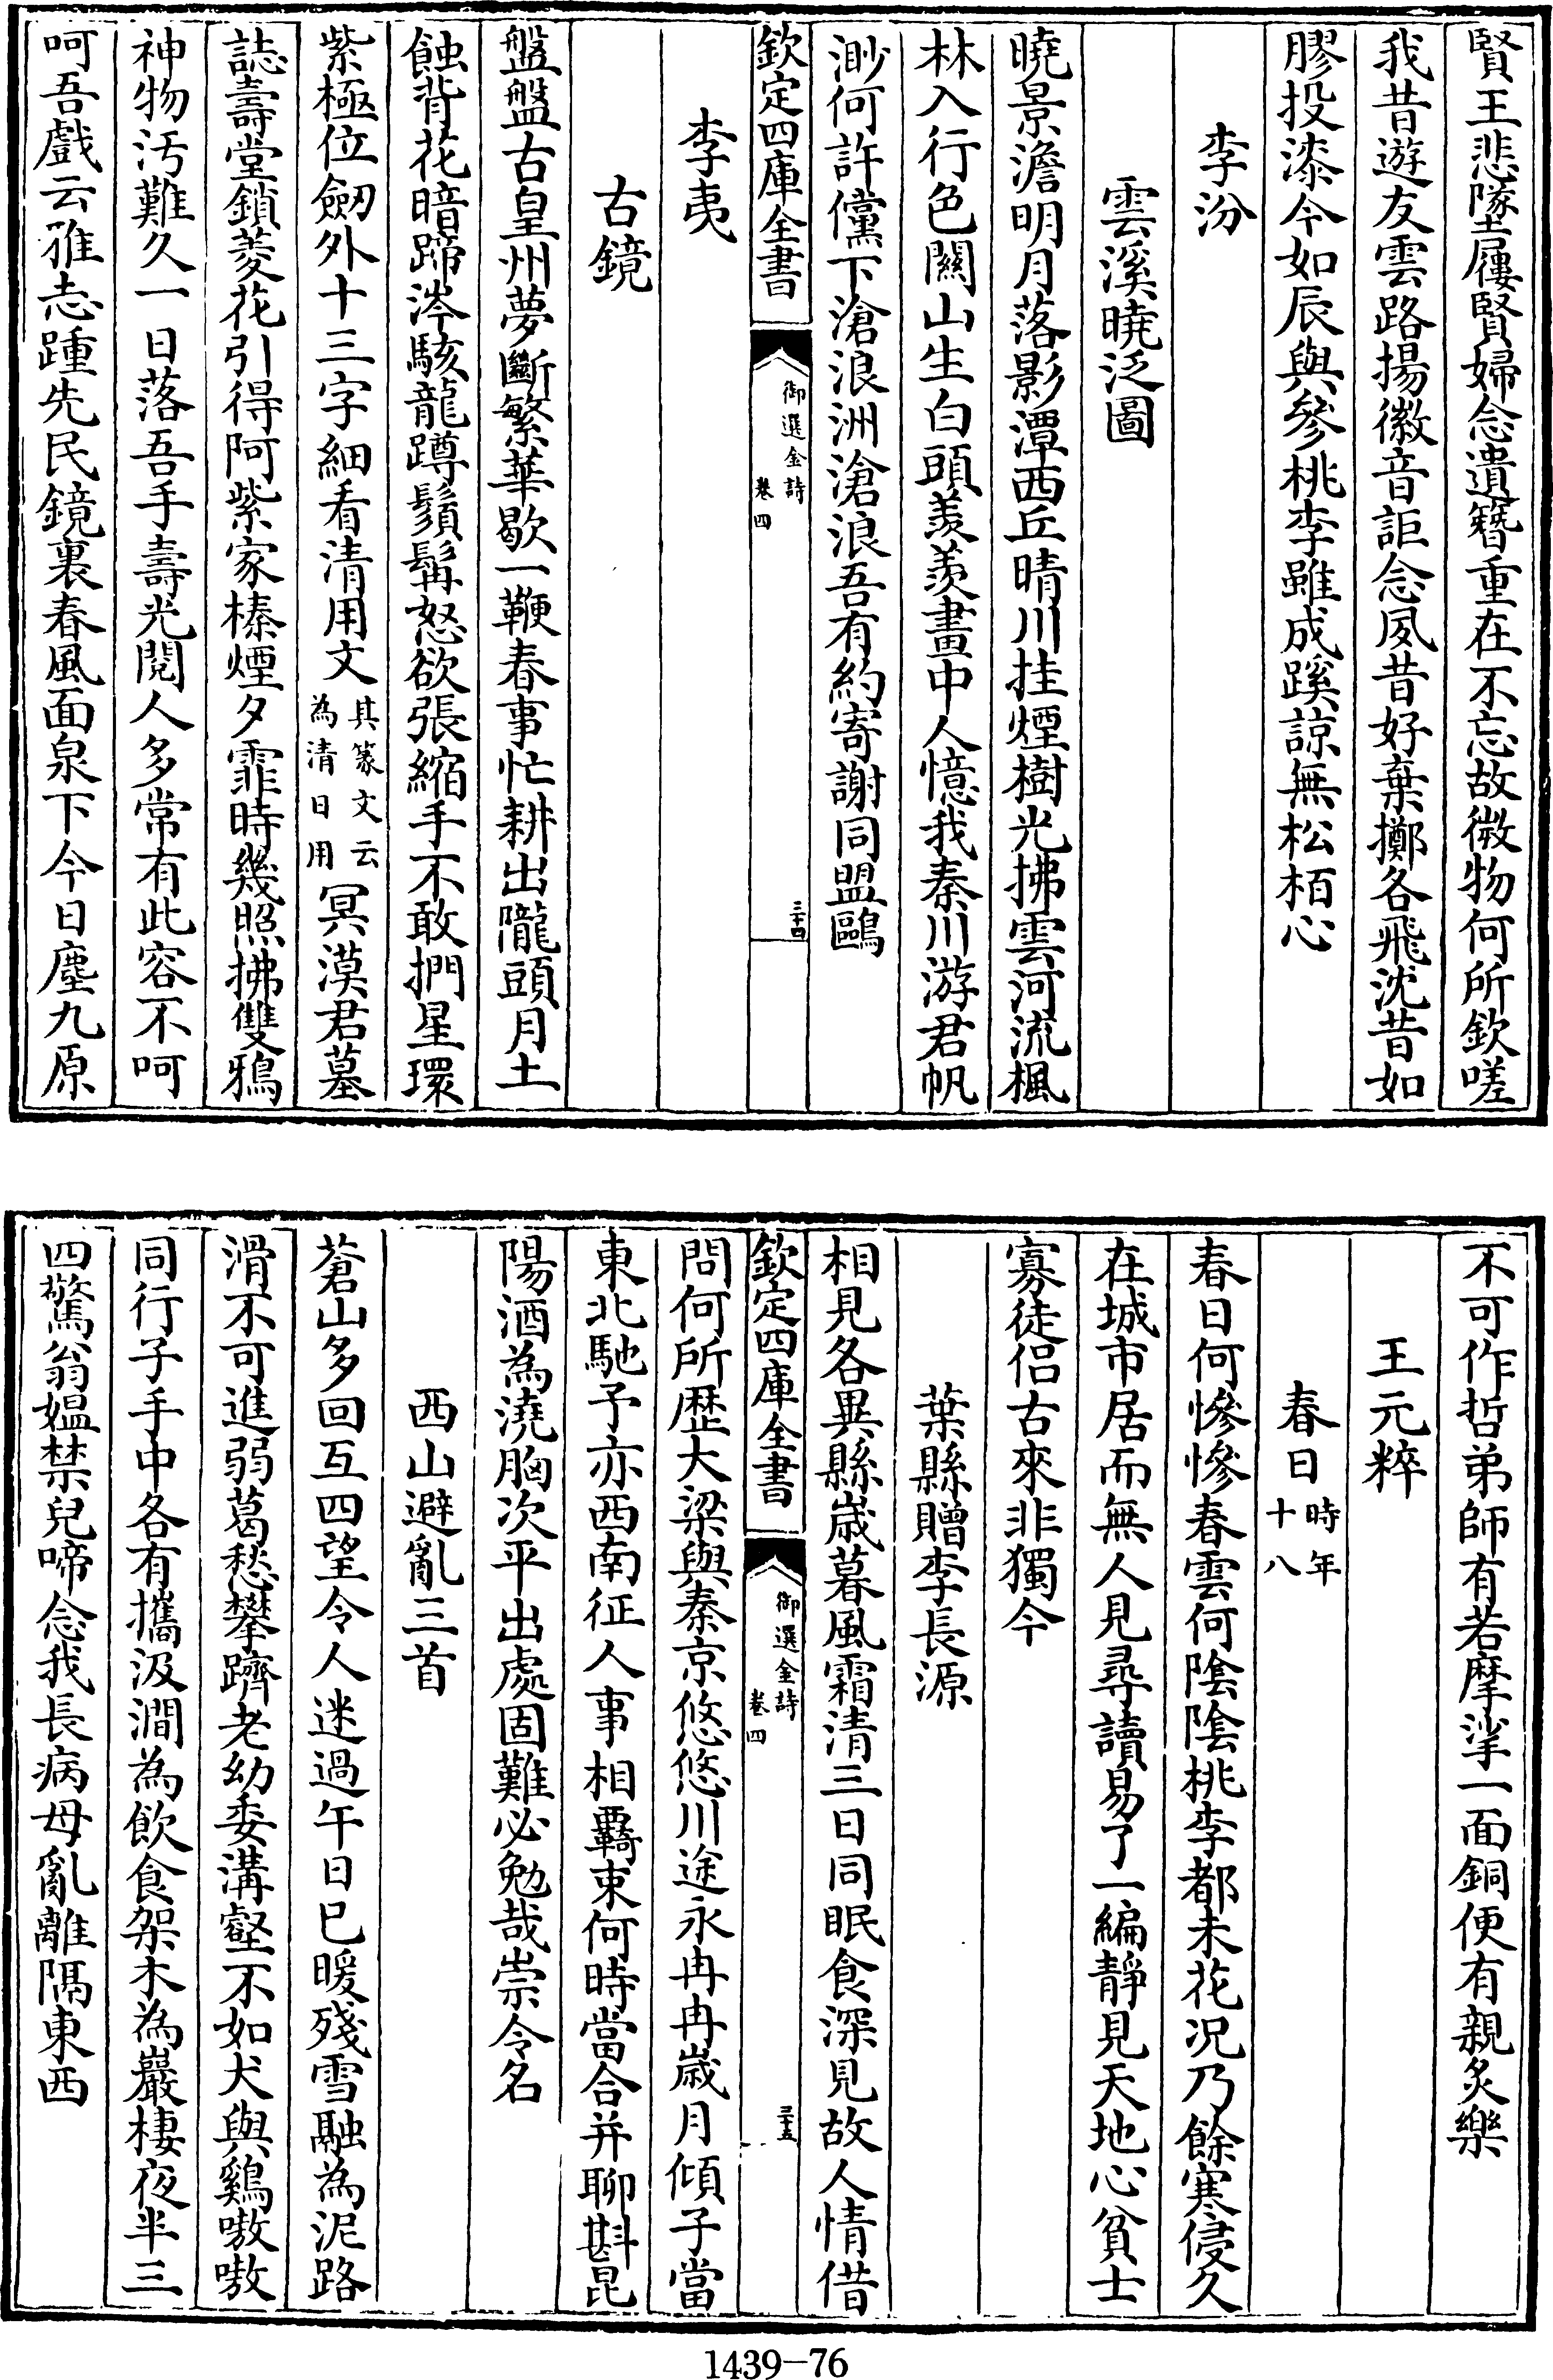 賢王悲墜屨賢婦念遺簮重在不忘故微物何所欽嗟
我昔遊友雲路揚徽音詎念夙昔好棄擲各飛沈昔如
膠投漆今如辰與參桃李雖成蹊諒無松栢心
李汾
雲溪曉泛圖
曉景澹明月落影潭西丘晴川挂煙樹光拂雲河流楓
林入行色關山生白頭羨羨畫中人憶我秦川游君帆
渺何許儻下滄浪洲滄浪吾有約寄謝同盟鷗
欽定四庫全書
御選金詩
卷四
三十四
李夷
古鏡
盤盤古皇州夢斷繁華歇一鞭春事忙耕出隴頭月土
蝕背花暗蹄涔駭龍蹲鬚髯怒欲張縮手不敢捫星環
紫極位劒外十三字細看清用文其篆文云為清日用冥漠君墓
誌壽堂鎖菱花引得阿紫家榛煙夕霏時幾照拂雙鴉
神物汚難久一日落吾手壽光閱人多常有此容不呵
呵吾戲云雅志踵先民鏡裏春風面泉下今日塵九原
不可作哲弟師有若摩挲一面銅便有親炙樂
王元粹
春日時年十八
春日何慘慘春雲何陰陰桃李都未花况乃餘寒侵久
在城市居而無人見尋讀易了一編靜見天地心貧士
寡徒侣古來非獨今
葉縣贈李長源
相見各異縣歲暮風霜清三日同眠食深見故人情借
欽定四庫全書
御選金詩
卷四
三十五
問何所歷大梁與秦京悠悠川途永冉冉歲月傾子當
東北馳予亦西南征人事相覊束何時當合并聊斟昆
陽酒為澆胸次平出處固難必勉哉崇令名
西山避亂三首
蒼山多回互四望令人迷過午日已暖殘雪融為泥路
滑不可進弱葛愁攀躋老幼委溝壑不如犬與鷄嗷嗷
同行子手中各有攜汲澗為飲食架木為巖棲夜半三
四驚翁媼禁兒啼念我長病母亂離隔東西
1439-76